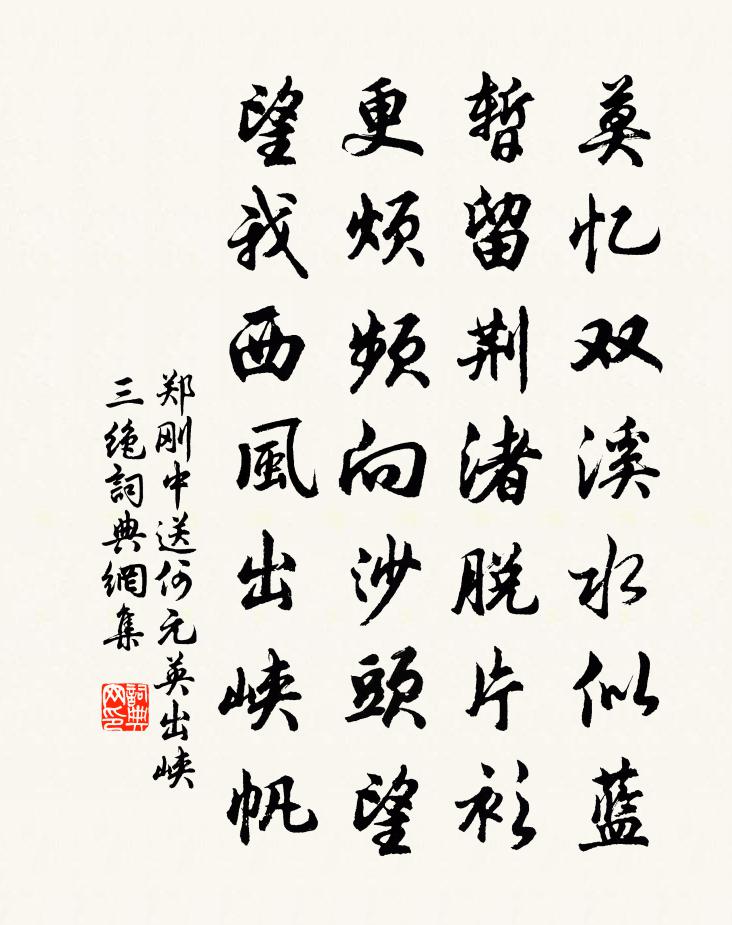 莫忆双溪水似蓝
暂留荆渚脱片衫
更烦频向沙頭望
望我西風出峡帆
郑刚中送何元英出峡
三绝詞典網集
詞典网印